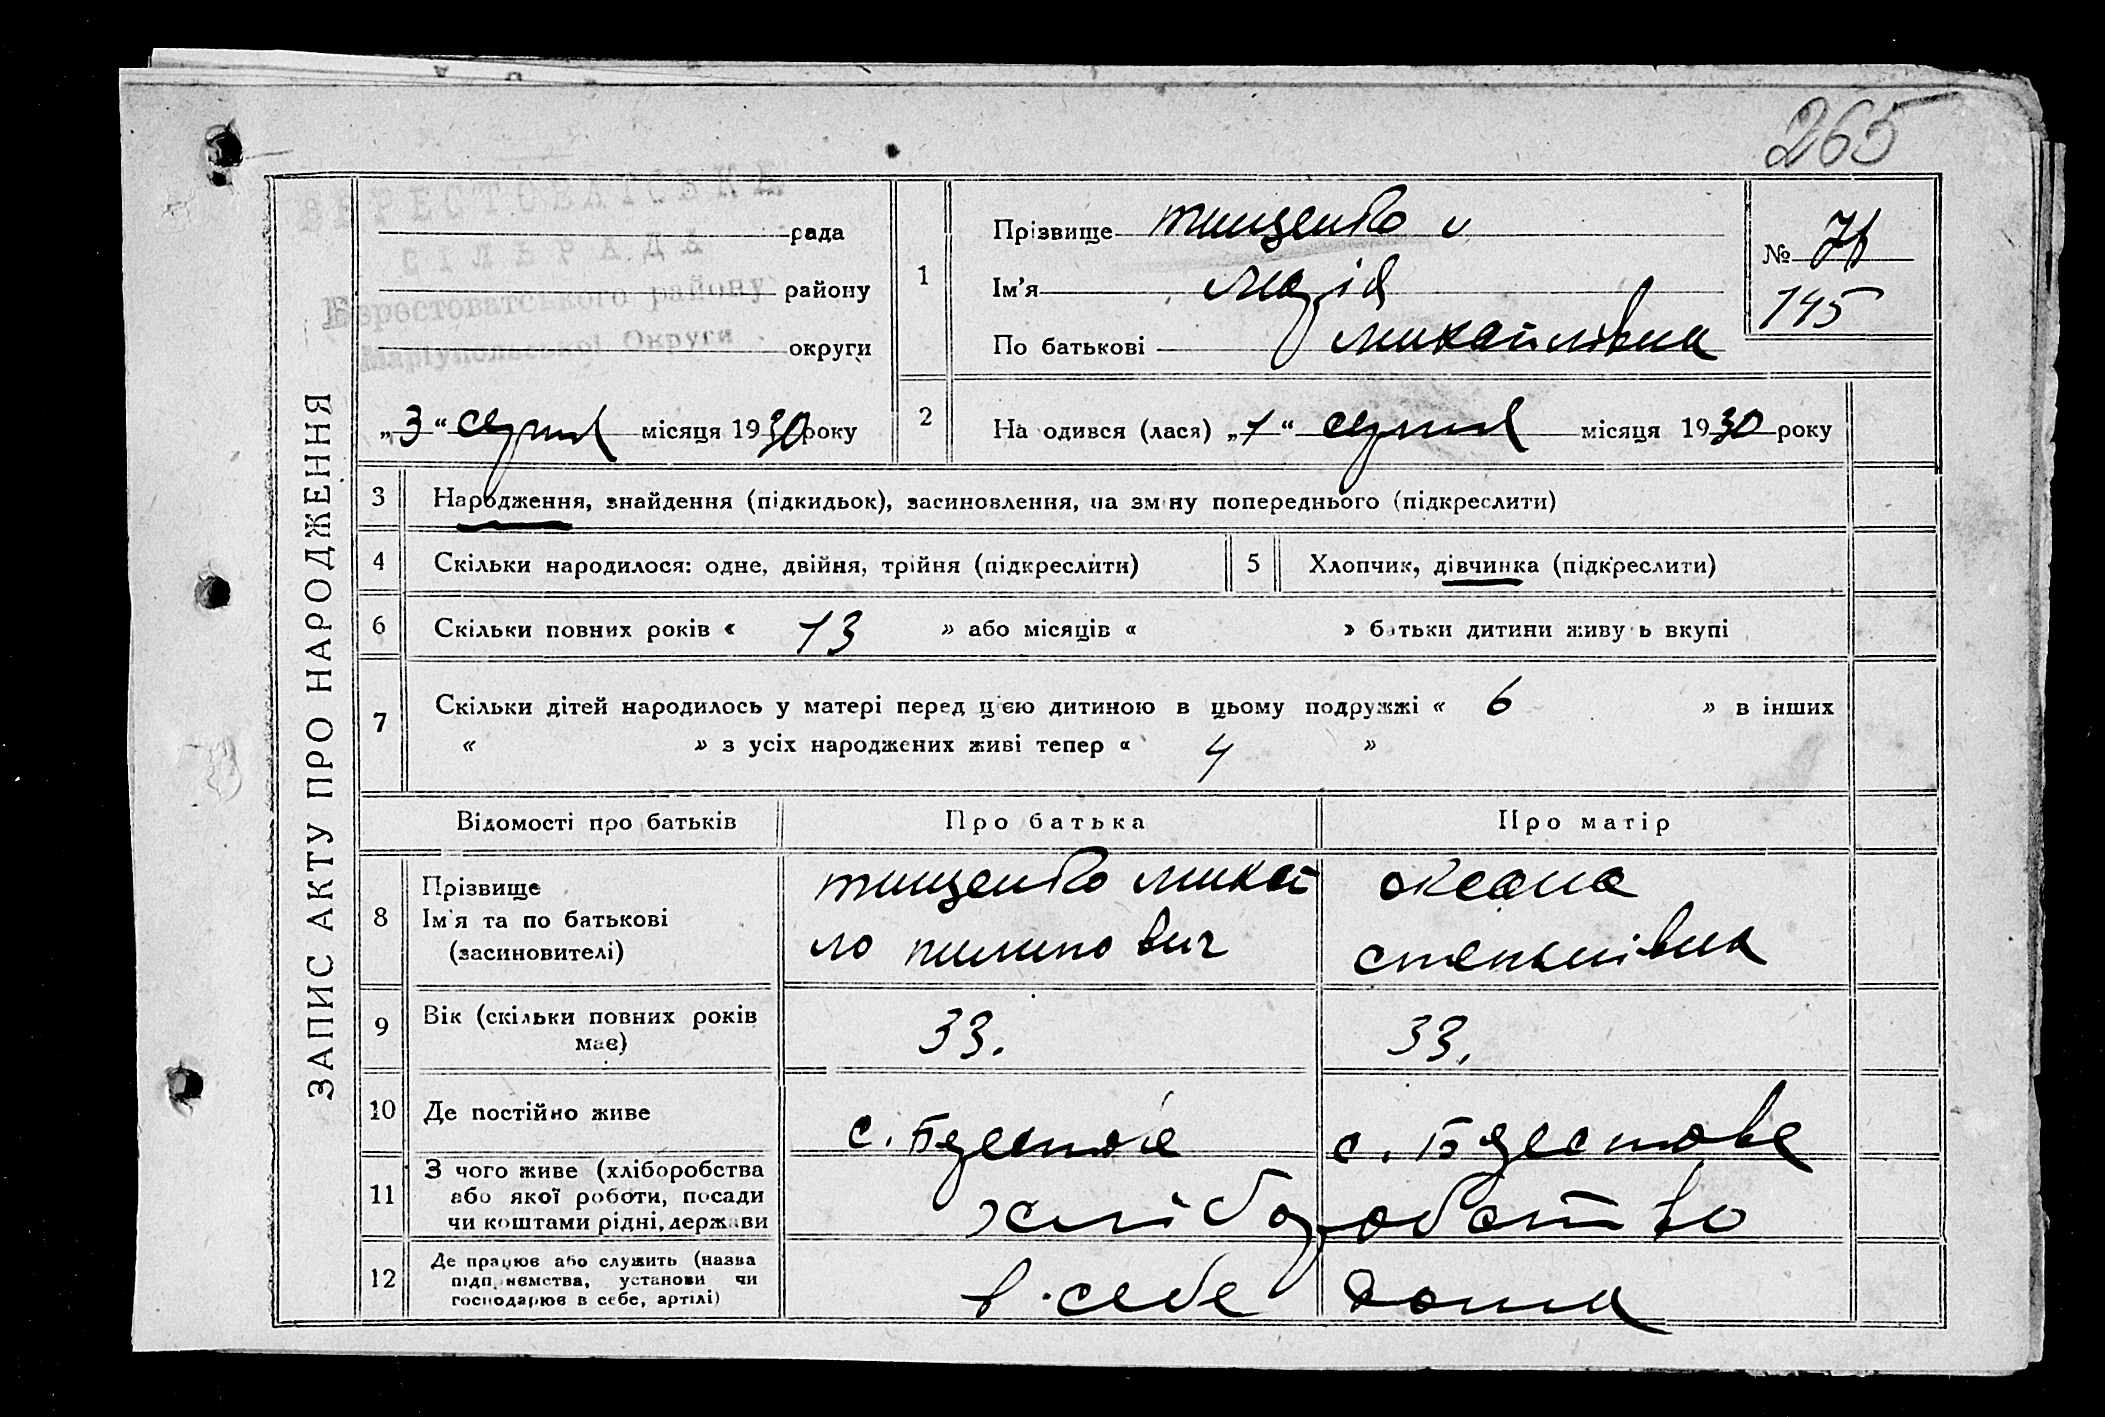 265
БЕРЕСТОВАТСЬКА
СІЛЬРАДА
Берестоватського району
Маріупольської Округи
рада
району
округи
„3“ серпня місяця 1930 року
ЗАПИС АКТУ ПРО НАРОДЖЕННЯ
1
Прізвище Тищенко
Ім'я Марія
По батькові Михайлівна
№
145
2 На одився (лася) „1“ серпня місяця 1930 року
3 Народження, знайдення (підкидьок), засиновлення, на зміну попереднього (підкреслити)
4 Скільки народилося: одне, двійня, трійня (підкреслити)
5 Хлопчик, дівчинка (підкреслити)
6 Скільки повних років « 13 » або місяців « » батьки дитини живуть вкупі
7 Скільки дітей народилось у матері перед цією дитиною в цьому подружжі « 6 » в інших
« » з усіх народжених живі тепер « 4 »
Відомості про батьків Про батька Про матір
8 Прізвище
Ім'я та по батькові
(засиновителі)
Тищенко Михай
ло Пилипович
Оксана
Степанівна
9 Вік (скільки повних років
має)
33.
33.
10 Де постійно живе
с. Берестове
с. Берестове
11 З чого живе (хліборобства
або якої роботи, посади
чи коштами рідні, держави
хліборобство
12 Де працює або служить (назва
підприємства, установи чи
господарює в себе, артілі)
в себе дома